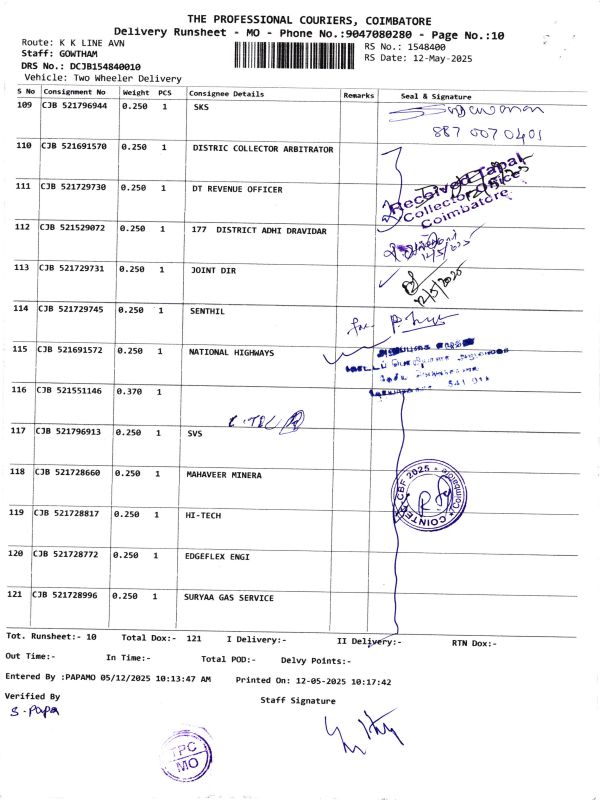 THE PROFESSIONAL COURIERS, COIMBATORE
Delivery Runsheet - MO - Phone No.:9047080280 - Page No.:10
Route: K K LINE AVN
RS No.: 1548400
Staff: GOWTHAM
RS Date: 12-May-2025
DRS No.: DCJB154840010
Vehicle: Two Wheeler Delivery
S No Consignment No Weight PCS Consignee Details Remarks Seal & Signature
109 CJB 521796944 0.250 1 SKS
887 007 0401
110 CJB 521691570 0.250 1 DISTRIC COLLECTOR ARBITRATOR
111 CJB 521729730 0.250 1 DT REVENUE OFFICER
Received Tapal
Collector Office
Coimbatore
112 CJB 521529072 0.250 1 177 DISTRICT ADHI DRAVIDAR
12/5/2025
113 CJB 521729731 0.250 1 JOINT DIR
12/5/2025
114 CJB 521729745 0.250 1 SENTHIL
for
115 CJB 521691572 0.250 1 NATIONAL HIGHWAYS
116 CJB 521551146 0.370 1
117 CJB 521796913 0.250 1 SVS
118 CJB 521728660 0.250 1 MAHAVEER MINERA
119 CJB 521728817 0.250 1 HI-TECH
120 CJB 521728772 0.250 1 EDGEFLEX ENGI
121 CJB 521728996 0.250 1 SURYAA GAS SERVICE
Tot. Runsheet:- 10 Total Dox:- 121 I Delivery:- II Delivery:- RTN Dox:-
Out Time:- In Time:- Total POD:- Delvy Points:-
Entered By :PAPAMO 05/12/2025 10:13:47 AM Printed On: 12-05-2025 10:17:42
Verified By
Staff Signature
S. Papa
TPC
MO